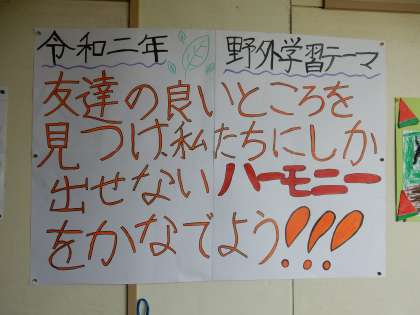 令和二年 野外学習テーマ
友達の良いところを
見つけ、私たちにしか
出せないハーモニー
をかなでよう!!!